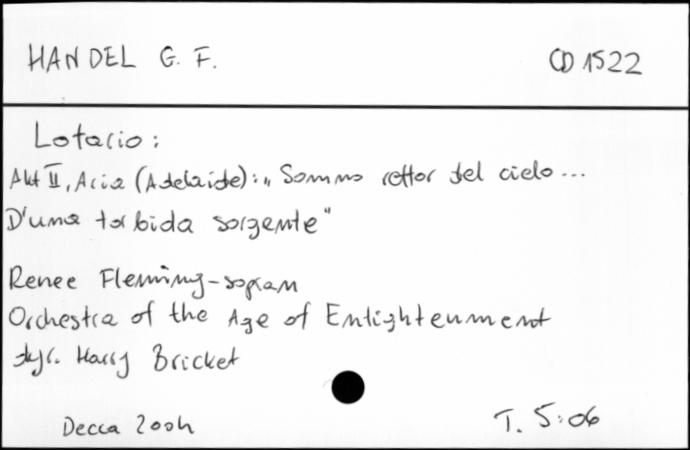 HANDEL G. F. CD 1522
Lotario:
Akt II, Aria (Adelaide): „Sommo rettor del cielo...
D'una torbida sorgente"
Renee Fleming - sopran
Orchestra of the Age of Enlightenment
dyr. Harry Bricket
Decca 2004 T. 5:06